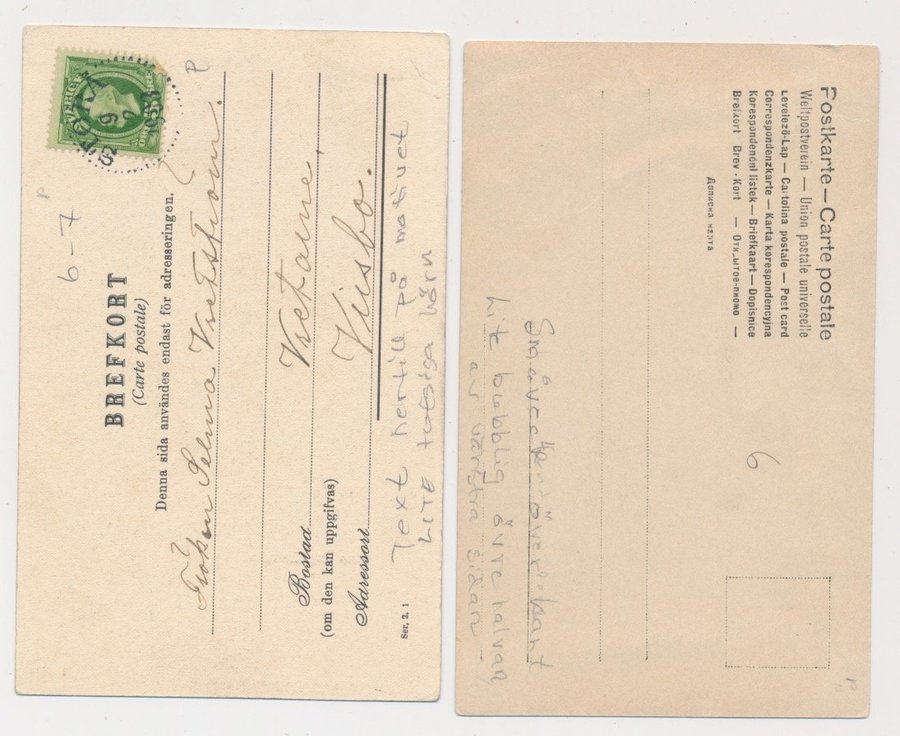 SVERIGE
6 - 7
P
BREFKORT
(Carte postale)
Denna sida användes endast för adresseringen.
Fröken Selma
P
Bostad
(om den kan uppgifvas)
Adressort Visbo.
Ser. 2. 1
Text hertill på motivet
LITE hörn
Postkarte — Carte postale
Weltpostverein — Union postale universelle
Levelező-Lap — Cartolina postale — Post card
Correspondenzkarte — Karta korespondencyjna
Korespondenční listek — Briefkaart — Dopisnice
Brefkort Brev-Kort — Открытое-письмо —
Дописна карта
6
Lite bubblig övre halvan
av vänstra sidan
P